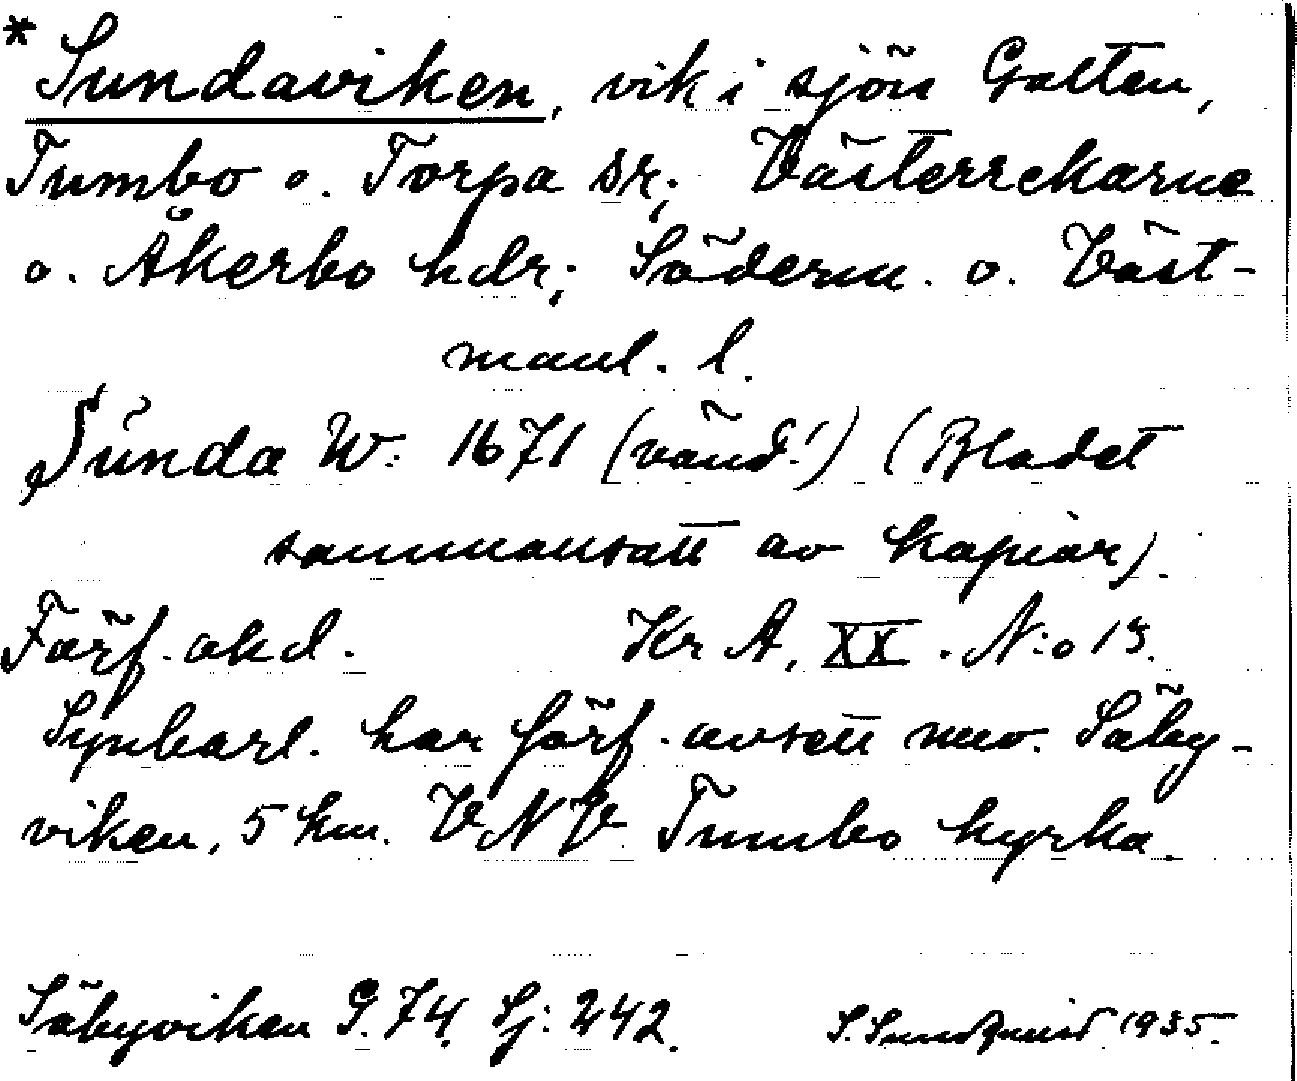 * Sundaviken, vik i sjön Galten,
Tumbo o. Torpa sr; Västerrekarne
o. Åkerbo hdr; Söderm. o. Väst-
manl. l.
Súnda W: 1671 (vänd!) (Bladet
sammansatt av kopior).
Förf. okd. Kr A, XX. N:o 13.
Synbarl. har förf. avsett nuv. Säby-
viken, 5 km. VNV Tumbo kyrka.
Säbyviken G. 74. Sj: 242. S. Sundquist 1935.